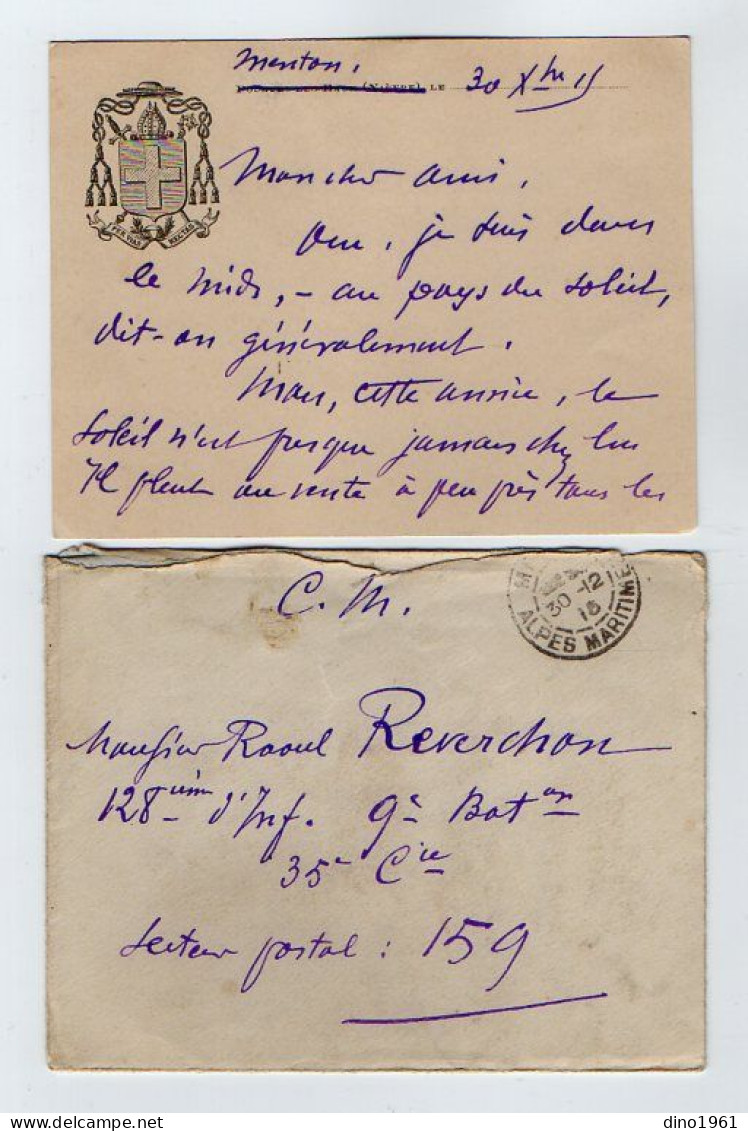 Menton,
(Nièvre), LE 30 Xbre 15
PER VIAS RECTAS
Mon cher ami,
Oui, je suis dans
le midi, - au pays du soleil,
dit-on généralement.
Mais, cette année, le
soleil n'est presque jamais chez lui
Il pleut ou vente à peu près tous les
C. M.
30 -12
15
ALPES MARITIME
Monsieur Raoul Reverchon
128ième d'Inf. 9e Baton
35e Cie
Secteur postal : 159
dino1961